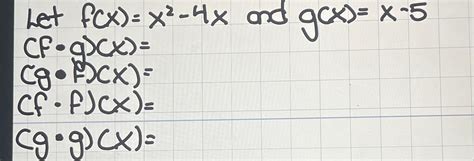 Let f(x) = x² - 4x and g(x) = x - 5
(f • g)(x) =
(g • f)(x) =
(f • f)(x) =
(g • g)(x) =